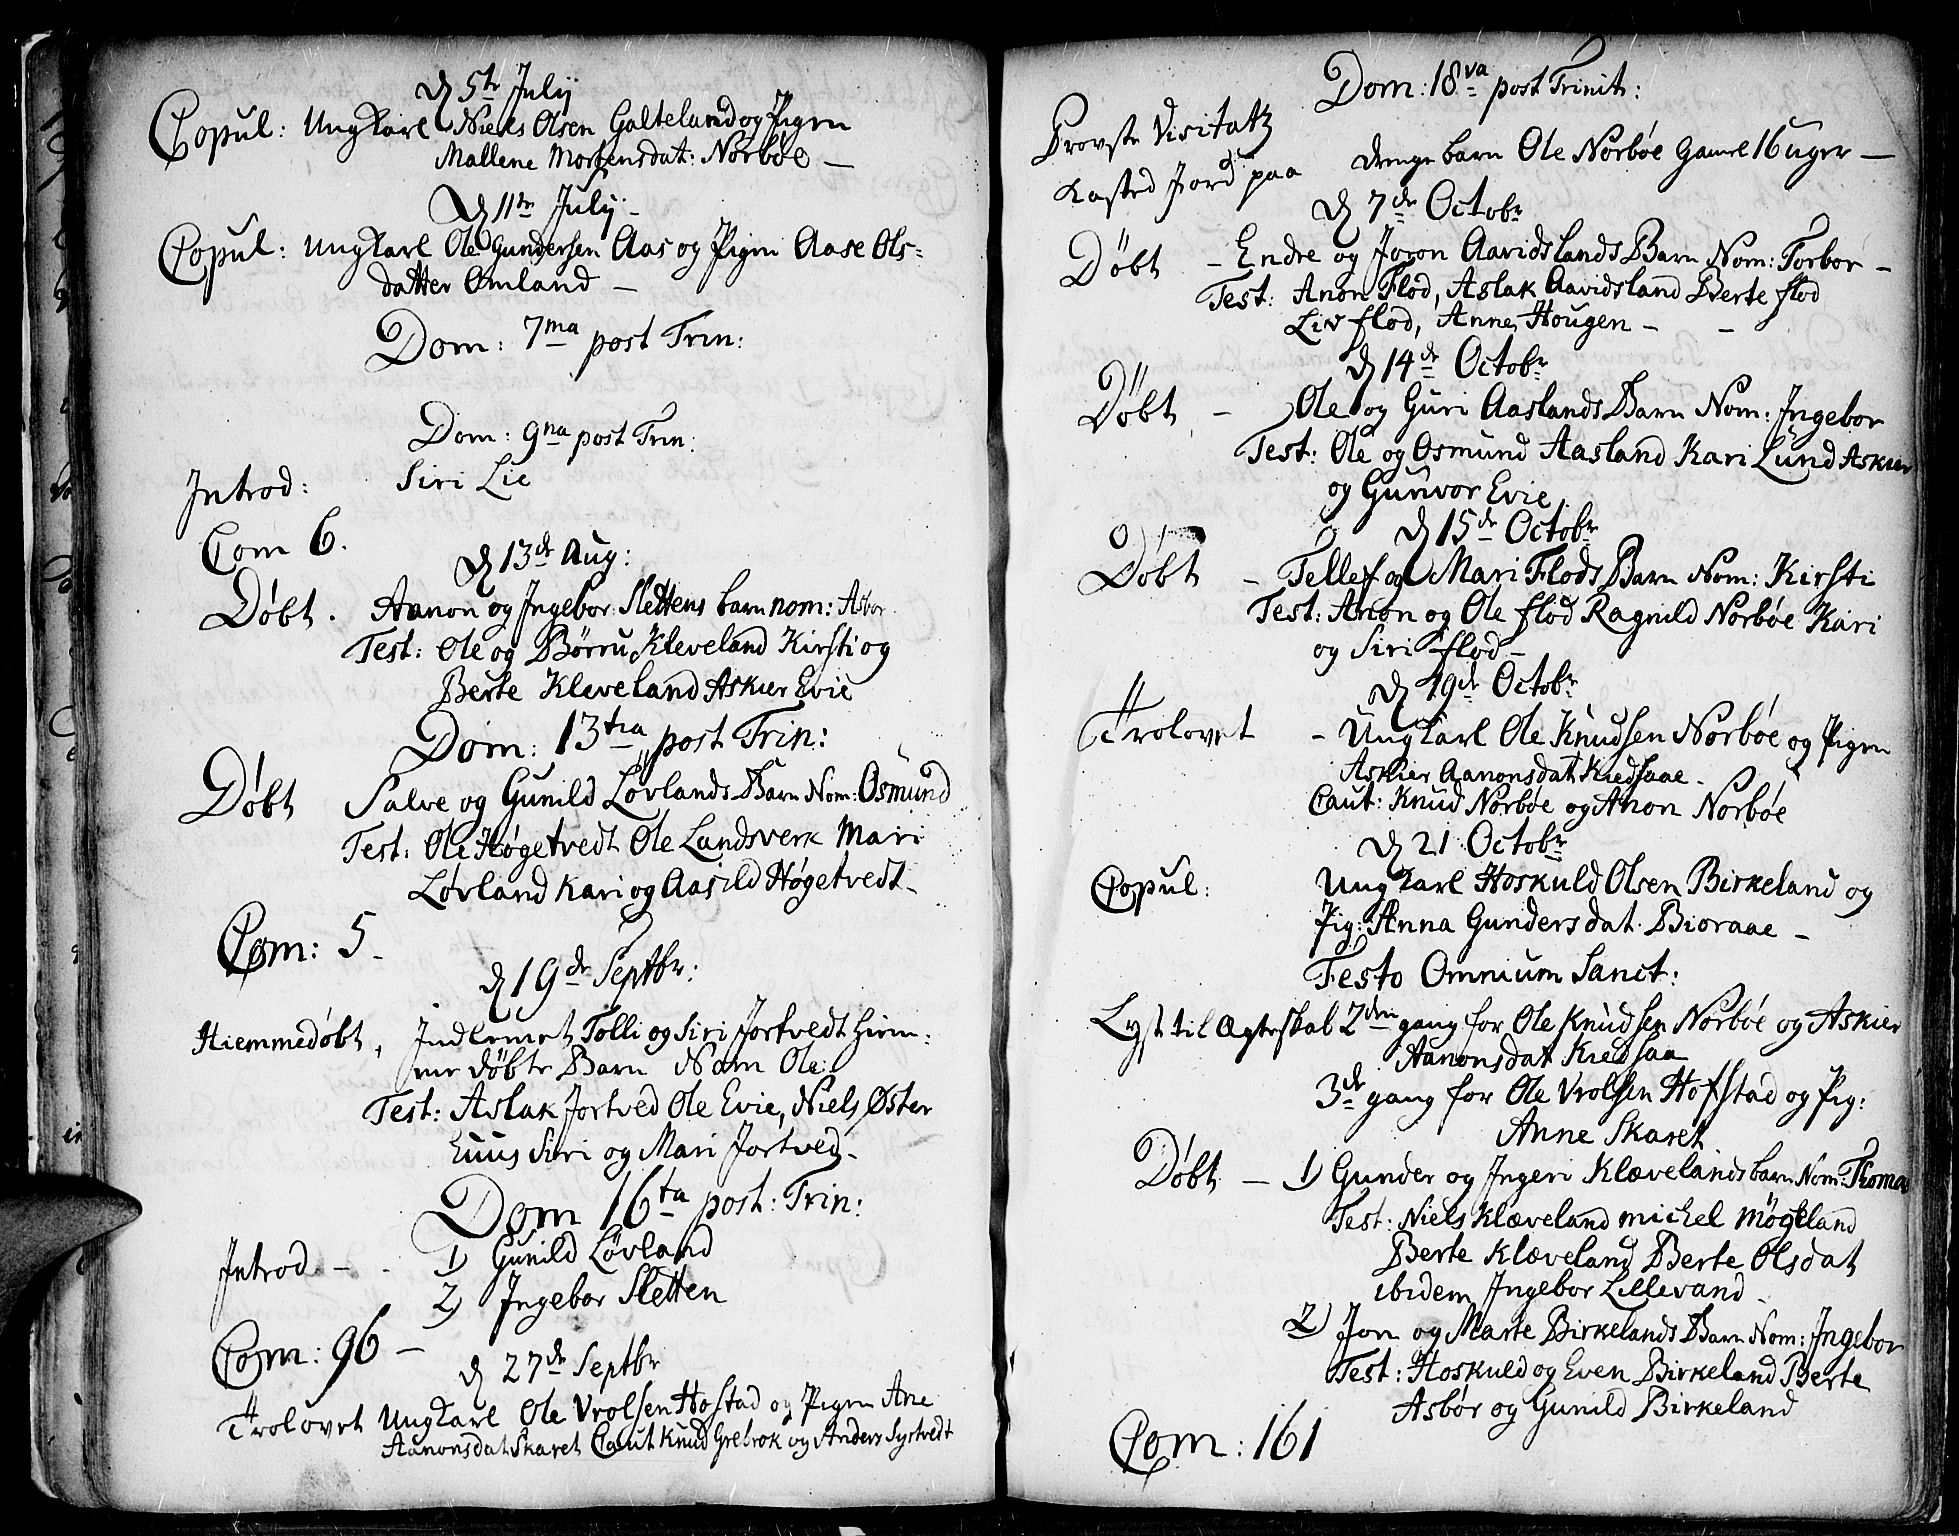 d 5te July
Copul: Ungkarl Niels Olsen Galteland og Pigen
Mallene Mortensdat: Norbøe —
d 11te July
Copul: Ungkarl Ole Gundersen Aas og Pigen Aase Ols=
datter Omland —
Dom: 7ma post Trin:
Dom: 9na post Trin:
Introd: Siri Lie
Com 6.
d 13de Aug:
Døbt. Aanon og Ingebor Slettens barn nom: Asbor
Test: Ole og Børru Kleveland Kirsti og
Berte Kleveland Askier Evie
Dom: 13tia post Trin:
Døbt Salve og Gunild Løvlands Barn Nom: Osmund
Test: Ole Høgetvedt Ole Landsverk Mari
Løvland Kari og Aasild Høgetvedt
Com: 5
d 19de Septbr:
Hiemmedøbt, Indlemet Tolli og Siri Jortvedt hiem-
me døbte Barn Nom Ole
Test: Aslak Jortved Ole Evie, Niels Øster
Siri og Mari Jortved
Dom 16ta post: Trin:
Introd — 1) Gunild Løvland
2) Ingebor Sletten
Com: 96 —
d 27de Septbr
Trolovet Ungkarl Ole Vrolsen Hofstad og Pigen Ane
Aanonsdat Skaret Caut Knud Grebrok og Anders Systvedt
Dom: 18va post Trinit:
Provste Visitatz
Kasted Jord paa drenge barn Ole Norbøe gamel 16 uger —
d 7de Octobr
Døbt – Endre og Joron Aavidslands Barn Nom: Torbor –
Test: Anon Flod, Aslak Aavidsland Berte flod
Liv flod, Anne Hougen –
d 14de Octobr
Døbt – Ole og Guri Aaslands Barn Nom: Ingebor
Test: Ole og Osmund Aasland Kari Lund Askier
og Gunvor Evie
d 15de Octobr
Døbt – Tellef og Mari Flods Barn Nom: Kirsti
Test: Anon og Ole flod Ragnild Norbøe Kari
og Siri flod –
d 19de Octobr
Trolovet – Ungkarl Ole Knudsen Norbøe og Pigen
Askier Aanonsdat Kiedsaae.
Caut: Knud Norbøe og Anon Norbøe
d 21 Octobr
Copul: Ungkarl Hoskuld Olsen Birkeland og
Pig: Anna Gundersdat Bioraae –
Festo Omnium Sanct:
Lyst til Ægteskab 2den gang for Ole Knudsen Norbøe og Askier
Aanonsdat Kiedsaa
3de gang for Ole Vrolsen Hofstad og Pig:
Anne Skaret
Døbt – 1) Gunder og Ingeri Klævelands barn Nom: Thomas
Test: Niels Klæveland michel Møgland
Berte Klæveland Berte Olsdat
ibidem Ingebor Lillevand
2) Jon og Marte Birkelands Barn Nom: Ingebor
Test: Hoskuld og Even Birkeland Berte
Asbør og Gunild Birkeland
Com: 161